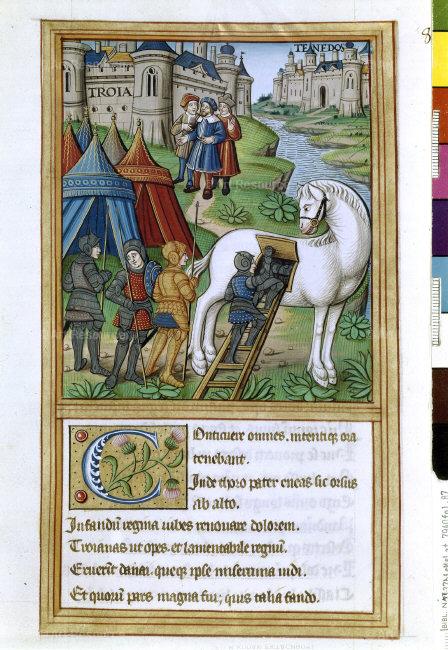 TENEDOS
TROIA
8
Conticuere omnes. intentiq ora
tenebant.
Inde thoro pater eneas sic orsus
Ab alto.
Infandū regina iubes renouare dolorem.
Troianas ut opes. et lamentabile regnū.
Eruerīt danai. queq ipse miserrima uidi.
Et quorū pars magna fui; quis talia fando.